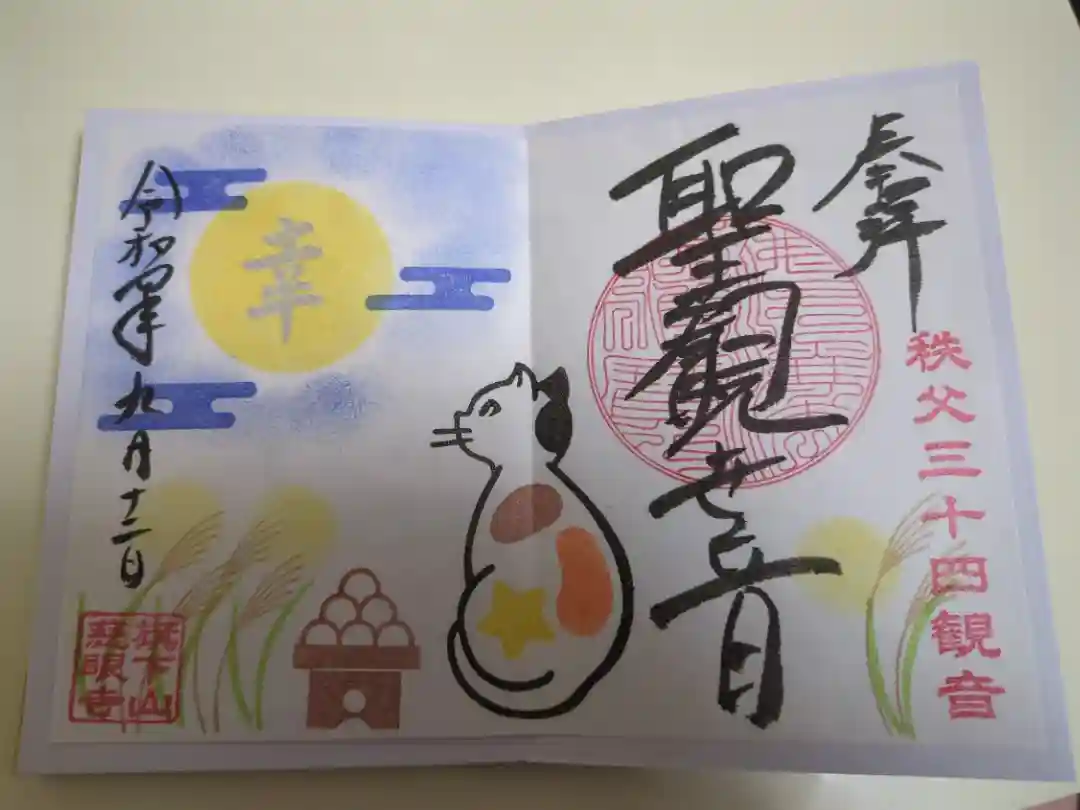 奉拝
秩父三十四観音
聖観世音
幸
令和四年九月十二日
旗下山
慈眼寺